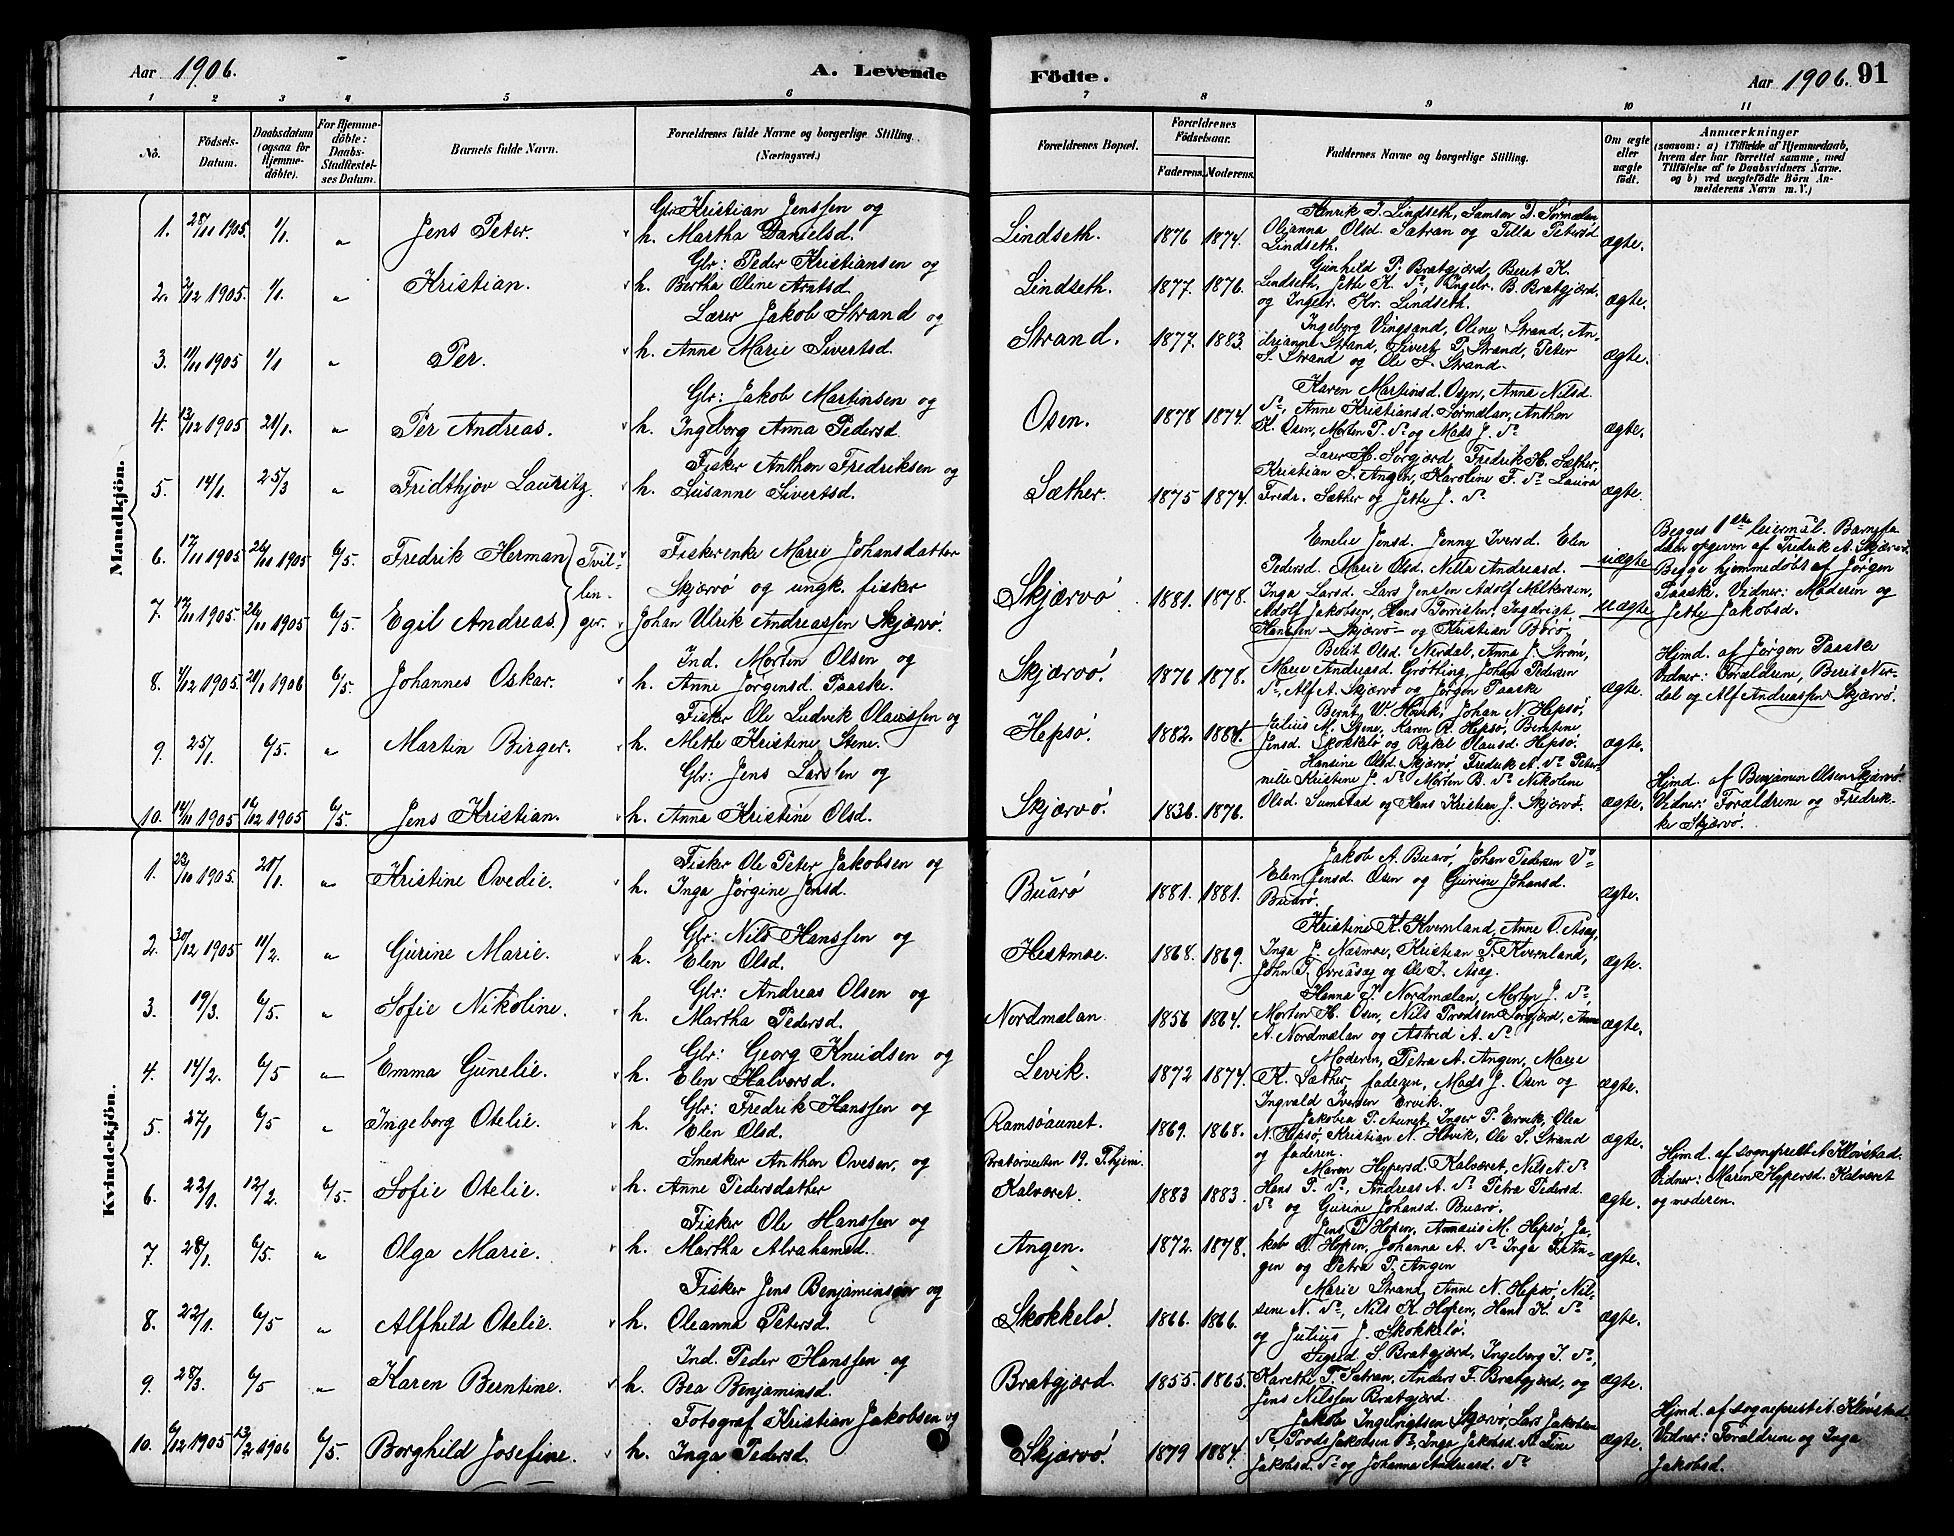 Aar 1906. A. Levende
Födte. Aar 1906. 91
1 2 3 4 5 6 7 8 9 10 11
No. Födsels-Datum. Daabsdatum (ogsaa for Hjemmedöbte). For Hjemmedöbte: Daabs-Stadfæstelses Datum. Barnets fulde Navn. Forældrenes fulde Navne og borgerlige Stilling. (Næringsvei.)
Forældrenes Bopæl. Forældrenes Födselsaar. Faderens. Moderens. Faddernes Navne og borgerlige Stilling. Om ægte eller uægte födt. Anmærkninger (saasom: a) i Tilfælde af Hjemmedaab, hvem der har forrettet samme, med Tilföielse af to Daabsvidners Navne, og b) ved uægtefödte Börn Anmelderens Navn m. V.)
Mandkjön.
1. 28/11 1905. 1/1. " Jens Peter. Gbr. Kristian Jenssen og
h. Martha Danielsd. Lindseth. 1876 1874. Henrik J. Lindseth, Samson D. Sørmælan
Olianna Olsd. Sætran og Tilla Petersd
Lindseth. ægte.
2. 7/12 1905. 1/1. " Kristian. Gbr: Peder Kristiansen og
h. Bertha Oline Arntsd. Lindseth. 1877. 1876. Gunhild P. Bratgjærd, Berit K.
Lindseth, Jette K. do, Ingebr. B. Bratgjærd.
og Ingebr. Kr. Lindseth. ægte.
3. 11/11 1905 1/1 " Per. Lærer Jakob Strand og
h. Anne Marie Sivertsd. Strand. 1877. 1883. Ingeborg Vingsand, Oline Strand, An-
drianne Strand, Sivert P. Strand, Peter
S. Strand og Ole S. Strand. ægte.
4. 13/12 1905 21/1. " Per Andreas. Gbr: Jakob Martinsen og
h. Ingeborg Anna Pedersd. Osen. 1878 1874. Karen Martinsd. Osen, Anna Nilsd.
do, Anne Kristiansd. Sørmælan, Anthon
K. Osen, Morten P. do og Mads J. do ægte.
5. 14/1. 25/3 " Fridthjov Lauritz. Fisker Anthon Fredriksen og
h. Susanne Sivertsd. Sæther. 1875 1874. Lærer H. Sorgjærd, Fredrik H. Sæther,
Kristian S. Angen, Karoline F. do Laura
Fredr. Sæther og Jette J. do ægte.
6. 17/11 1905 26/11 1905 6/5. Fredrik Herman Tvil-
7. 17/11 1905. 26/11 1905 6/5. Egil Andreas. lin-
ger.
Fiskerenke Marie Johansdatter
Skjærvö og ungk. fisker
Johan Ulrik Andreassen Skjærvö.
Skjærvö 1881. 1878. Emelie Jensd. Jenny Iversd. Elen
Pedersd. Marie Olsd. Nella Andreasd.
Inga Larsd. Lars Jenssen Adolf Melkersen,
Adolf Jakobsen, Hans Torrissen, Ingebrigt
Hanssen Skjærvö og Kristian Börö.
uægte uægte Begges 1ste leiermål. Barnefa
deren opgiven af Fredrik A. Skjærvö.
Begge hjemmedöbt af Jörgen
Paaske. Vidner: Moderen og
Jette Jakobsd.
8. 4/12 1905. 21/1 1906 6/5. Johannes Oskar. Ind. Morten Olsen og
h. Anne Jörgensd. Paaske. Skjærvö. 1876 1878. Berit Olsd. Nerdal, Anna J. Ström,
Marie Andreasd. Grötting, Johan Pedersen
do, Alf A. Skjærvö og Jörgen Paaske ægte. Hjmd. af Jørgen Paaske
Vidner: Forældrene, Berit Ner-
dal og Alf Andreassen Skjærvö.
9. 25/1. 6/5. " Martin Birger. Fisker Ole Ludvik Olaussen og
h. Mette Kristine Stene. Hepsö. 1882. 1884. Bernt W. Hövik, Johan N. Hepsö,
Julius M. Stene, Karen R. Hepsö, Berntine
Jensd. Skokkelö og Rakel Olausd. Hepsö. ægte.
10. 14/11 1905 10/12 1905 6/5. Jens Kristian. Gbr: Jens Larssen og
h. Anna Kristine Olsd. Skjærvö. 1836. 1876. Hansine Olsd. Skjærvö, Fredrik A. do Peter-
nille Kristine J. do Morten B. do Nikoline
Olsd. Sumstad og Hans Kristian J. Skjærvö. ægte. Hjmd. af Benjamin Olsen Skjærvö.
Vidner: Forældrene og Fredrik-
ke Skjærvö.
Kvindekjön.
1. 22/10 1905. 21/1. " Kristine Ovedie. Fisker Ole Peter Jakobsen og
h. Inga Jørgine Jensd. Buarö 1881. 1881. Jakob A. Buarö, Johan Pedersen do
Elen Jensd. Osen og Gurine Johansd.
Buarö. ægte.
2. 30/12 1905 11/2. " Gurine Marie. Gbr: Nils Hanssen og
h. Elen Olsd. Hestmoe. 1868. 1869. Kristine K. Kvernland, Anne O. Asag,
Inga J. Næsmoe, Kristian T. Kvernland,
John P. Övreasag og Ole J. Asag. ægte.
3. 19/3. 6/5. " Sofie Nikoline. Gbr: Andreas Olsen og
h. Martha Pedersd. Nordmælan. 1856 1864. Hanna J. Nordmælan, Morten J. do,
Morten H. Osen, Nils Trodsen Sorgjerd, Anne
A. Nordmælan og Astrid A. do ægte.
4. 14/2. 6/5 " Emma Gunelie. Gbr: Georg Knudsen og
h. Elen Halvorsd. Levik. 1872 1874. Moderen, Petra A. Angen, Marie
K. Sæther, faderen, Mads J. Osen og
Ingvald Iversen Ervik. ægte.
5. 27/1 6/5 " Ingeborg Otelie. Gbr: Fredrik Hanssen og
h. Elen Olsd. Ramsöaunet. 1869. 1868. Jakobea P. Aunet, Inger P. Ervik, Olea
N. Hepsö, Kristian N. Hövik, Ole S. Strand
og faderen. ægte.
6. 22/1. 12/2. 6/5. Sofie Otelie. Snedker Anthon Ovesen, og
h. Anne Pedersdatter Bratörveiten 19. Thjem
Kalværet. 1883 1883. Maren Hypersd. Kalværet, Nils N. do
Hans P. do, Andreas A. do Petra Pedersd.
do og Gurine Johansd. Buarö. ægte. Hjmd. af sogneprest A. Klövstad.
Vidner: Maren Hypersd. Kalværet
og moderen.
7. 28/1 6/5. " Olga Marie. Fisker Ole Hanssen og
h. Martha Abrahamsd. Angen. 1872. 1878. Jens P. Hopen, Annæus M. Hepsö, Ja-
kob O. Hopen, Johanna A. do Inga P. An-
gen og Petra P. Angen ægte.
8. 22/1. 6/5 " Alfhild Otelie. Fisker Jens Benjaminsen og
h. Oleanna Petersd. Skokkelö. 1866. 1866. Marie Strand, Anne N. Hepsö, Nil-
sine N. do, Nils K. Hopen, Hans K. do
og Julius J. Skokkelö. ægte.
9. 28/3. 6/5 " Karen Berntine. Ind. Peder Hanssen og
h. Bea Benjaminsd. Bratgjærd. 1855. 1865. Sigrid S. Bratgjærd, Ingeborg J. do,
Karethe T. Sætran, Anders F. Bratgjærd, og
Jens Nilssen Bratgjærd. ægte.
10. 6/12 1905 13/2 1906 6/5. Borghild Josefine. Fotograf Kristian Jakobsen og
h. Inga Pedersd. Skjærvö. 1879 1884. Jakob Ingebrigtsen Skjærvö, Lars Jakobsen
do, Trode Jakobsen do, Inga Jakobsd. do Tine
Jakobsd. do og Johanna Andreasd. do ægte. Hjmd. af sogneprest A. Klövstad
Vidner: Forældrene og Inga
Jakobsd.